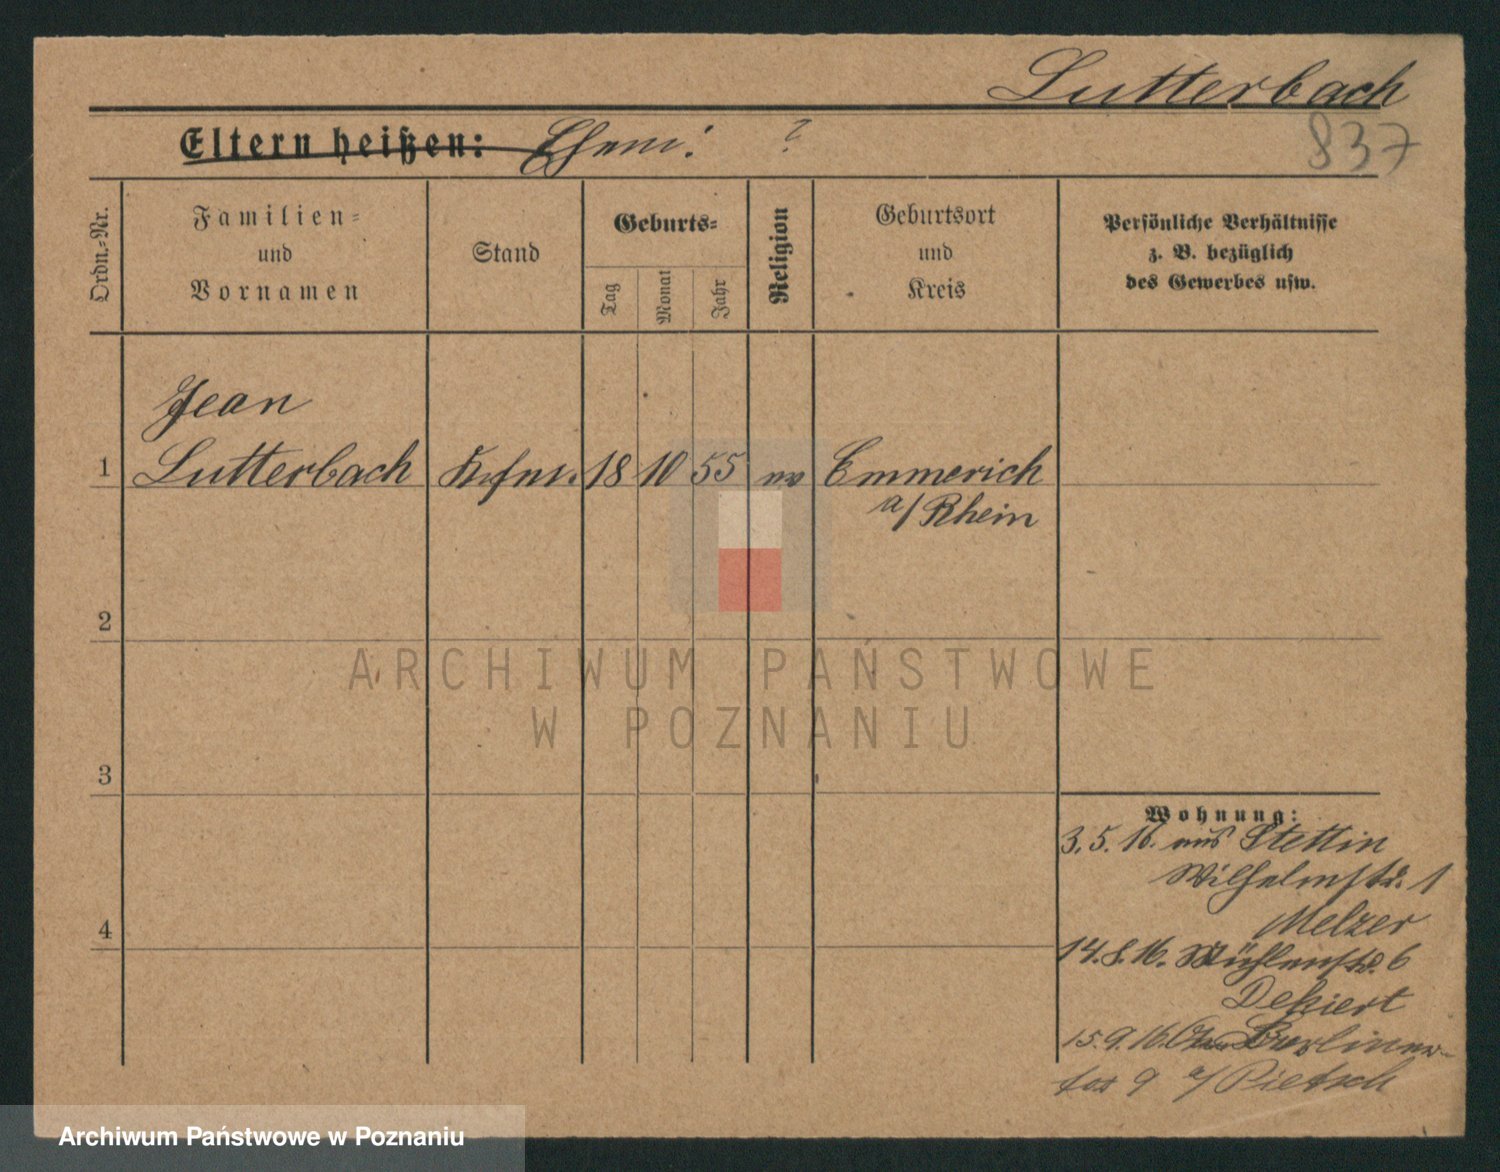 Lutterbach
837
Eltern heißen: ?
Ordn.-Nr.
Familien-
und
Vornamen
Stand
Geburts-
Tag
Monat
Jahr
Religion
Geburtsort
und
Kreis
Persönliche Verhältnisse
z. B. bezüglich
des Gewerbes usw.
Jean
1 Lutterbach Kfm. 18 10 55 ev Emmerich
a/Rhein
2
ARCHIWUM PAŃSTWOWE
W POZNANIU
3
4
Wohnung:
3.5.16. aus Stettin
Wilhelmstr. 1
Melzer
14.8.16. Mühlenstr. 6
Dekiert
15.9.16. Berliner-
9 a/ Pietsch
Archiwum Państwowe w Poznaniu